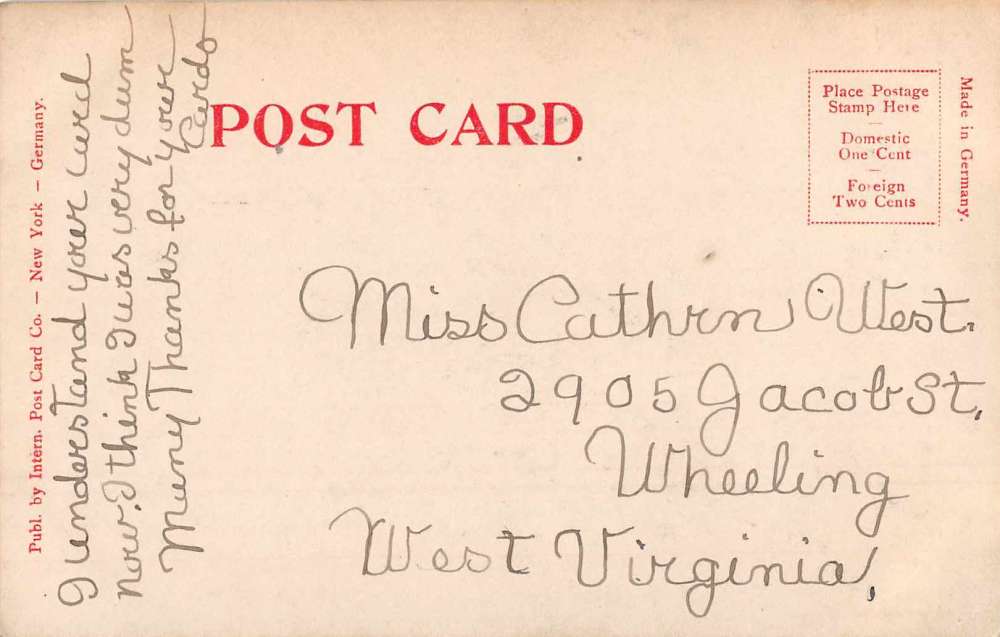 POST CARD
Place Postage
Stamp Here
Domestic
One Cent
Foreign
Two Cents
Made in Germany.
Publ. by Intern. Post Card Co. – New York – Germany.
I understand your card
now. I think I was very dum
Meny Thanks for your
Cards
Miss Cathrn West.
2905 Jacob St,
Wheeling
West Virginia,